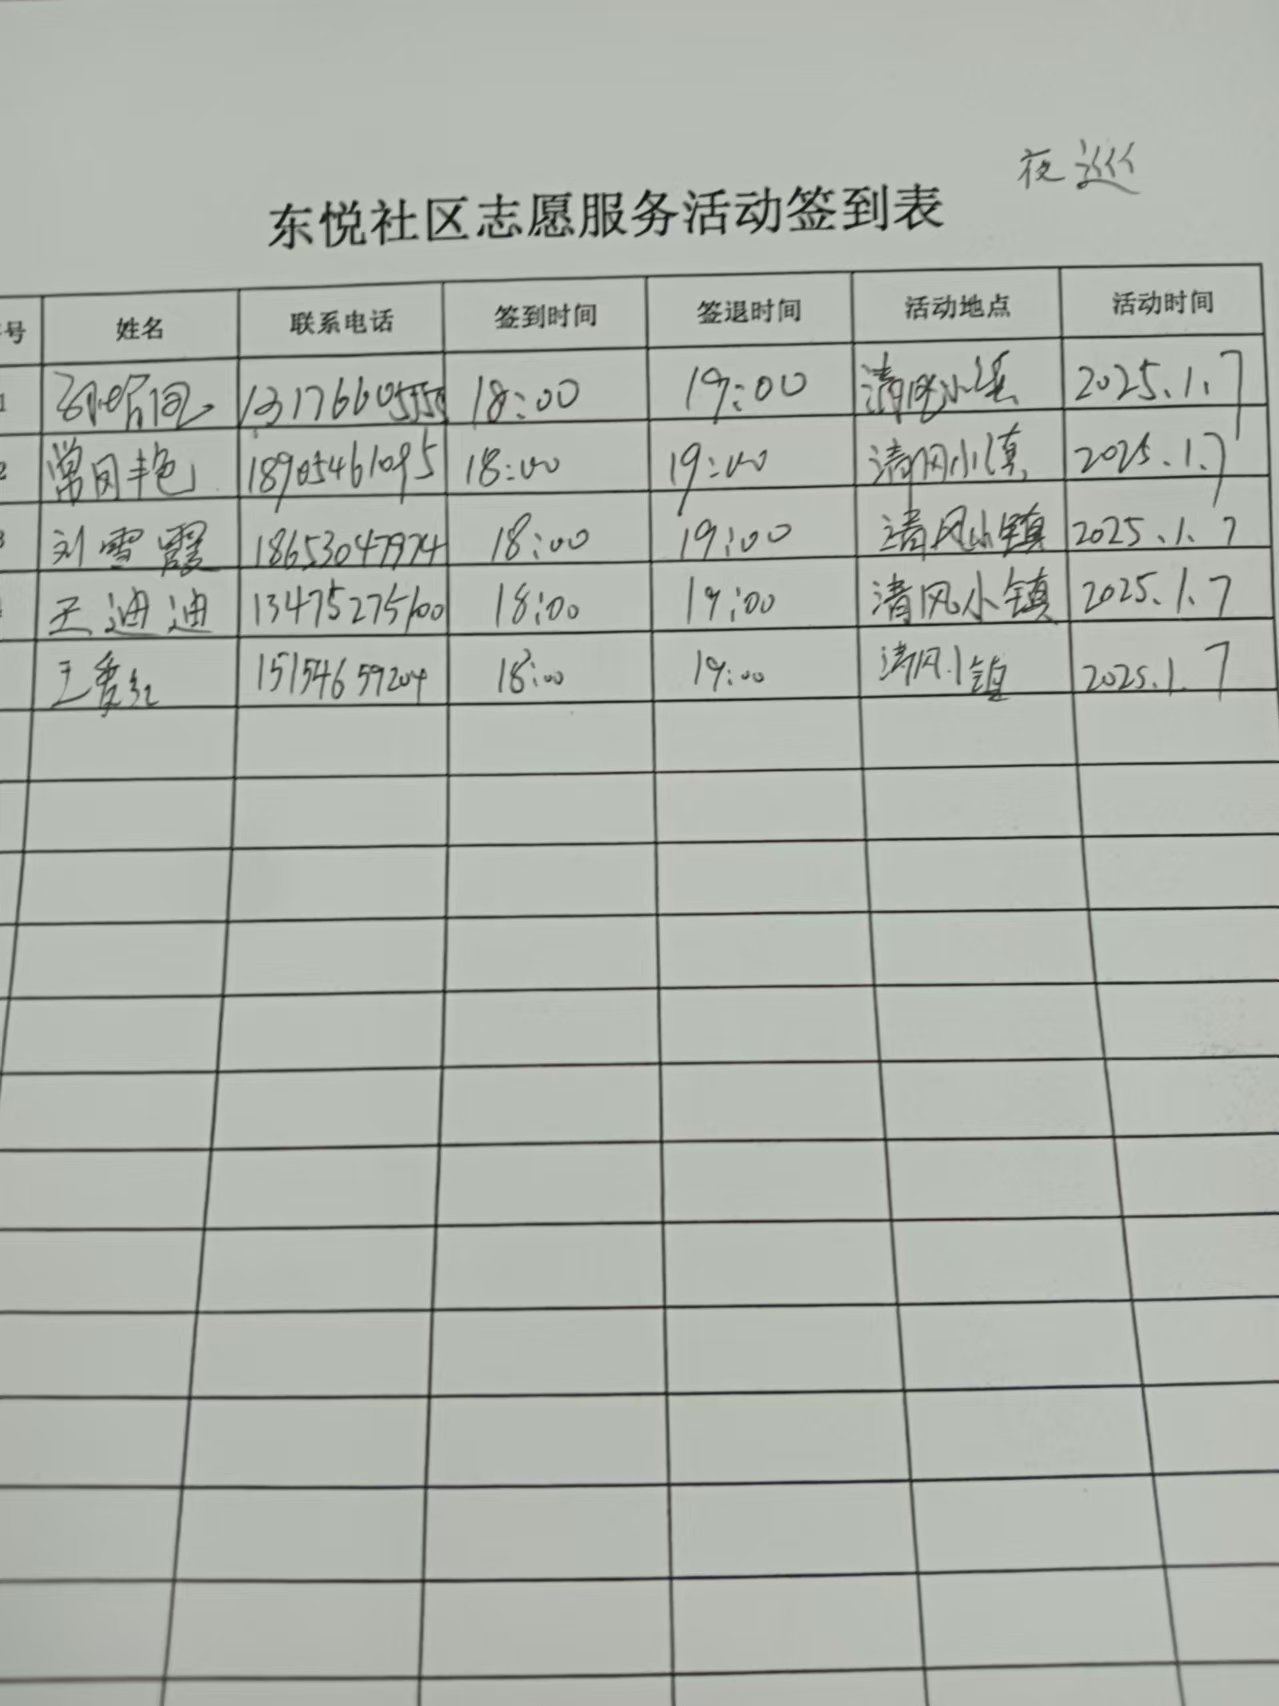 夜巡
东悦社区志愿服务活动签到表
号 姓名 联系电话 签到时间 签退时间 活动地点 活动时间
1 18:00 19:00 清风小镇 2025.1.7
2 常凤艳 18905461095 18:00 19:00 清风小镇 2025.1.7
3 刘雪霞 18653047974 18:00 19:00 清风小镇 2025.1.7
王迪迪 13475275600 18:00 19:00 清风小镇 2025.1.7
王秀红 15154659204 18:00 19:00 清风小镇 2025.1.7